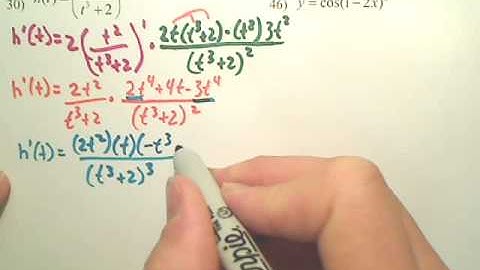 30) (t³+2)
46) y = cos(1-2x)²
h'(t) = 2(t²/(t³+2))¹ · (2t(t³+2) - (t²)3t²)/(t³+2)²
h'(t) = 2t²/(t³+2) · (2t⁴+4t-3t⁴)/(t³+2)²
h'(t) = (2t²)(t)(-t³/(t³+2)³